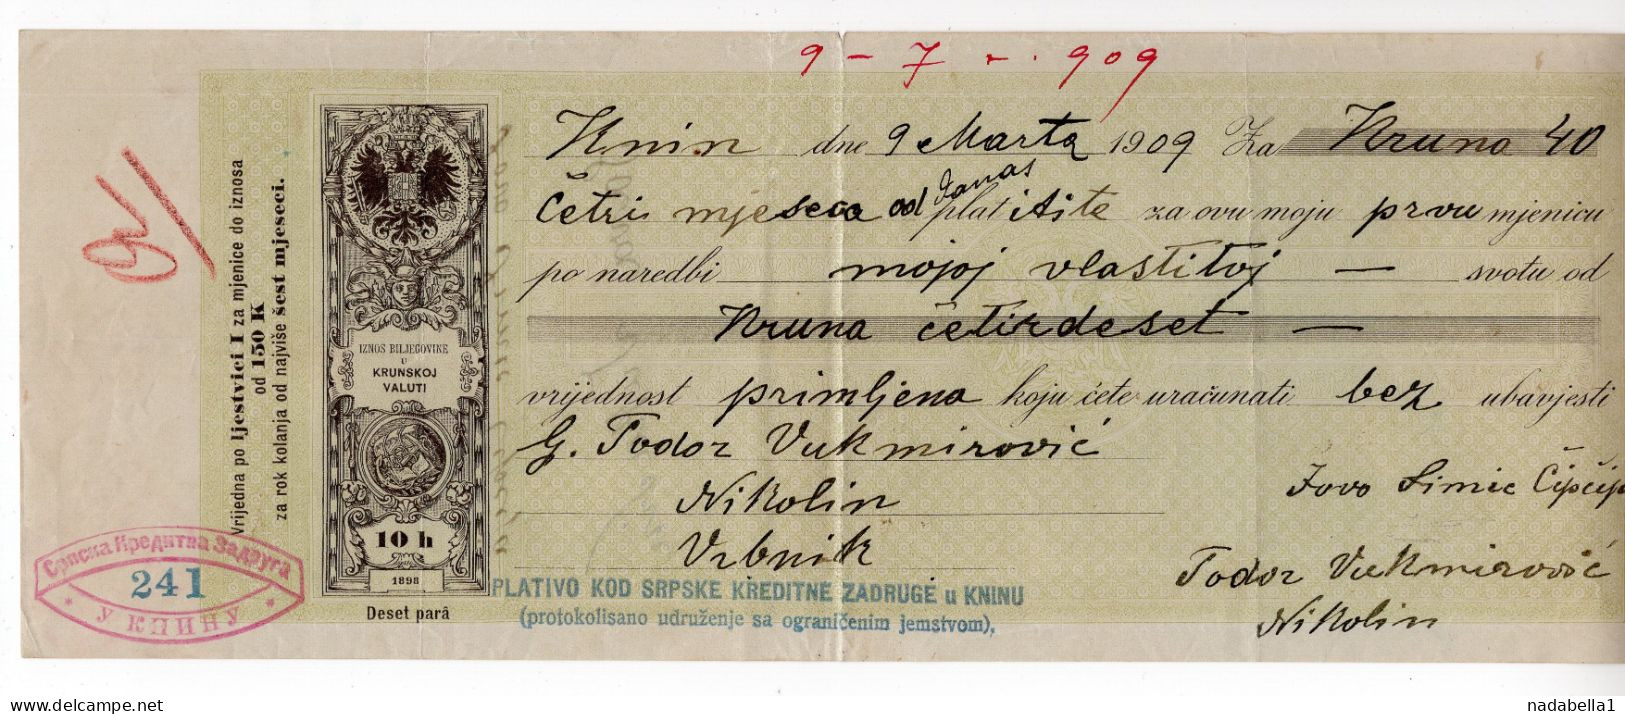 9 - 7 - . 909
Knin dne 9 Marta 1909 Za Kruna 40
Četri mjeseca od danas platitite za ovu moju prvu mjenicu
po naredbi mojoj vlastitoj — svotu od
Kruna četirdeset —
vrijednost primljena koju ćete uračunati bez ubavjesti
G. Todor Vukmirović
Nikolin
Vrbnik
Jovo Simić Čipčić
Todor Vukmirović
Nikolin
Vrijedna po ljestvici I za mjenice do iznosa
od 150 K
za rok kolanja od najviše šest mjeseci.
IZNOS BILJEGOVIKE
U
KRUNSKOJ
VALUTI
10 h
1898
Deset parâ
Српска Кредитна Задруга
241
* У КНИНУ *
PLATIVO KOD SRPSKE KREDITNE ZADRUGE u KNINU
(protokolisano udruženje sa ograničenim jemstvom).
nadabella1